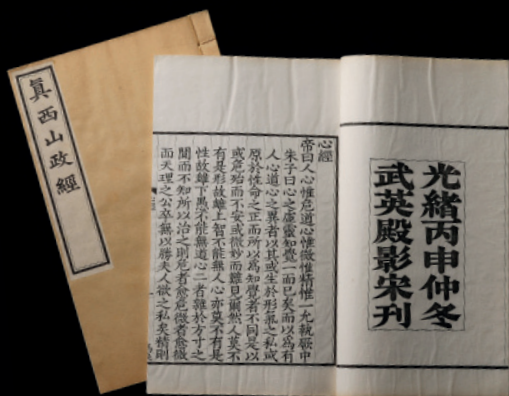 眞西山政經
光緒丙申仲冬
武英殿影宋刊
心經
帝曰人心惟危道心惟微惟精惟一允執厥中
朱子曰心之虛靈知覺一而已矣而以爲有
人心道心之異者以其或生於形氣之私或
原於性命之正而所以爲知覺者不同是以
或危殆而不安或微妙而難見爾然人莫不
有是形故雖上智不能無人心亦莫不有是
性故雖下愚不能無道心二者雜於方寸之
間而不知所以治之則危者愈危微者愈微
而天理之公卒無以勝夫人欲之私矣精則